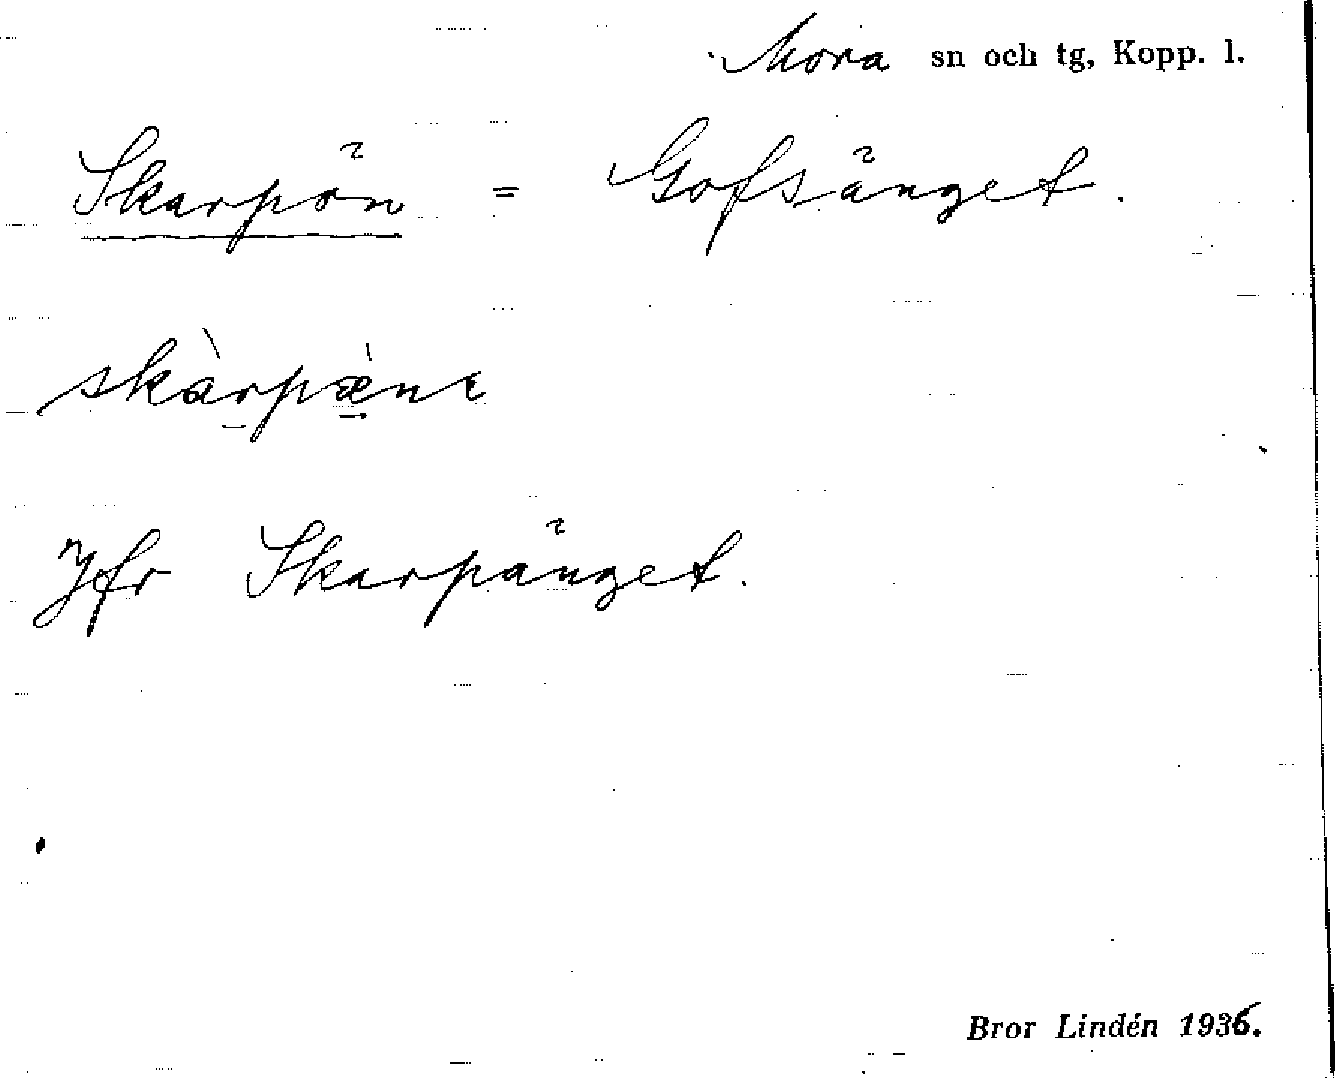 Mora sn och tg, Kopp. l.
Skarpön = Gofsänget.
skàrpæ̀nɛ
Jfr Skarpänget.
Bror Lindén 1936.